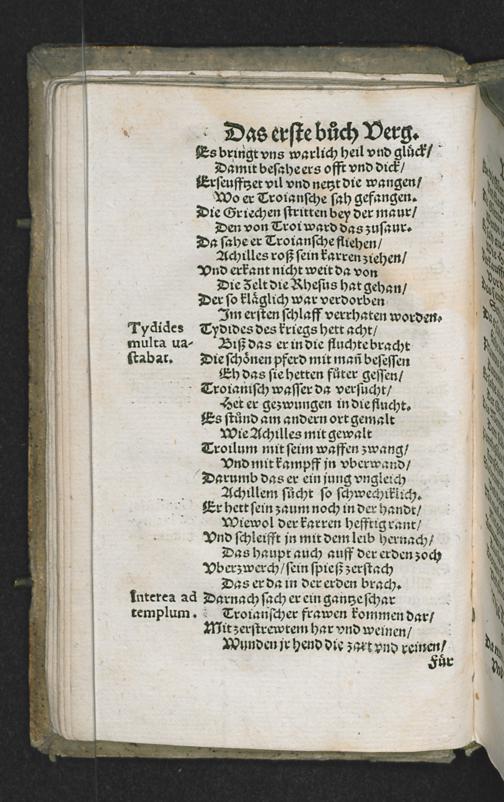 Das erste bůch Verg.
Es bringt vns warlich heil vnd glück/
Damit besahe ers offt vnd dick/
Erseufftzet vil vnd netzt die wangen/
Wo er Troiansche sah gefangen.
Die Griechen stritten bey der maur/
Den von Troi ward das zusaur.
Da sahe er Troiansche fliehen/
Achilles roß sein karren ziehen/
Vnd erkant nicht weit da von
Die Zelt die Rhesus hat gehan/
Der so kläglich war verdorben
Im ersten schlaff verrhaten worden.
Tydides
multa ua-
stabat.
Tydides des kriegs hett acht/
Biß das er in die fluchte bracht
Die schönen pferd mit mañ besessen
Eh das sie hetten fůter gessen/
Troianisch wasser da versucht/
Het er gezwungen in die flucht.
Es stůnd am andern ort gemalt
Wie Achilles mit gewalt
Troilum mit seim waffen zwang/
Vnd mit kampff in vberwand/
Darumb das er ein jung vngleich
Achillem sůcht so schwechiklich.
Er hett sein zaum noch in der handt/
Wiewol der karren hefftig rant/
Vnd schleifft jn mit dem leib hernach/
Das haupt auch auff der erden zoch
Vberzwerch/sein spieß zerstach
Das er da in der erden brach.
Interea ad
templum.
Darnach sach er ein gantze schar
Troianscher frawen kommen dar/
Mit zerstrewtem har vnd weinen/
Wunden jr hend die zart vnd reinen/
Für